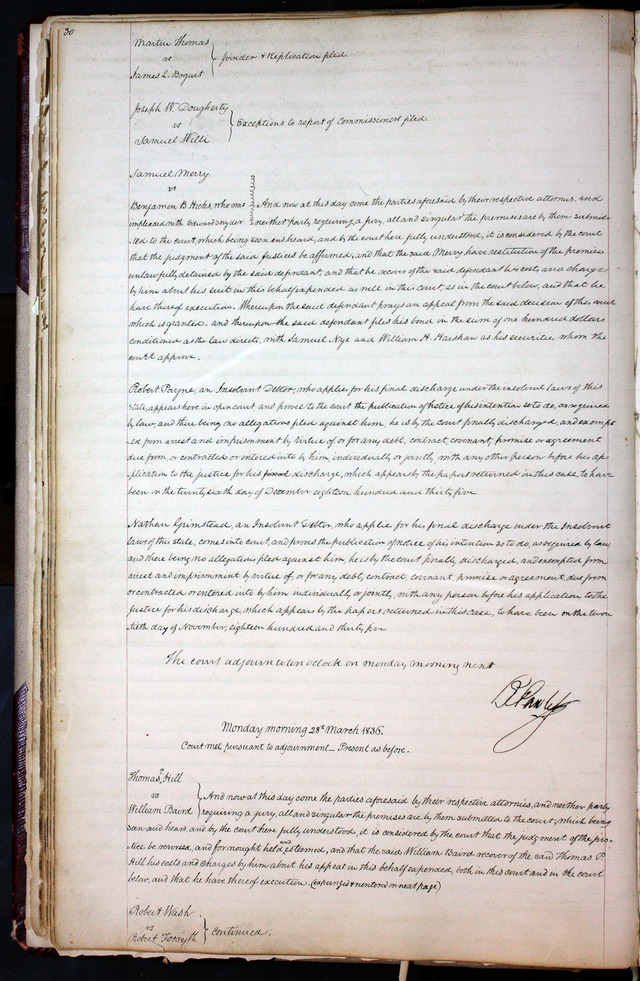 30
Martin Thomas
vs
James L. Bogart
} Joinder & Replication filed
Joseph W. Dougherty
vs
Samuel Willi
} Exceptions to report of Commissioner filed
Samuel Merry
vs
Benjamin B. Hicks, who was And now at this day come the parties aforesaid by their respective attornies, and
impleaded with Edward Snyder neither party requiring a jury, all and singular the premises are by them submit-
ted to the court, which being seen and heard, and by the court here fully understood, it is considered by the court
that the judgment of the said Justices be affirmed, and that the said Merry have restitution of the premises
unlawfully detained by the said defendant, and that he recover of the said defendant his costs and charges
by him about his suit in this behalf expended as well in this court, as in the court below, and that he
have thereof execution. Whereupon the said defendant prays an appeal from the said decision of this court
which is granted. and thereupon the said defendant files his bond in the sum of one hundred dollars
conditioned as the law directs, with Samuel Nye and William H. Harshaw as his securities, whom the
court approve.
Robert Payne, an Insolvent Debtor, who applies for his final discharge under the insolvent laws of this
State, appears here in open court and proves to the court the publication of notice of his intention so to do, as required
by law, and there being no allegations filed against him, he is by the court finally discharged, and exempt-
ed from arrest and imprisonment by virtue of or for any debt, contract, covenant, promise or agreement
due from, or contracted or entered into by him, individually or jointly, with any other person before his ap-
plication to the justice for his discharge, which appears by the papers returned in this case, to have
been on the twenty sixth day of December eighteen hundred and thirty five
Nathan Grimstead, an Insolvent Debtor, who applies for his final discharge under the Insolvent
laws of this state, comes into court, and proves the publication of notice of his intention so to do, as required by law,
and there being no allegations filed against him, he is by the court finally discharged, and exempted from
arrest and imprisonment by virtue of, or for any debt, contract, covenant, promise or agreement, due from
or contracted or entered into by him individually or jointly, with any person before his application to the
Justice for his discharge, which appears by the papers returned in this case, to have been on the twen
tieth day of November, eighteen hundred and thirty five
The court adjourn to ten o'clock on monday morning next
Monday morning 28th March 1836.
Court met pursuant to adjournment - Present as before.
Thomas P. Hill
vs
William Baird } And now at this day come the parties aforesaid by their respective attornies, and neither party
requiring a jury, all and singular the premises are by them submitted to the court, which being
seen and heard, and by the court here fully understood, it is considered by the court that the judgment of the jus-
tice be reversed, and for nought held and esteemed, and that the said William Baird recover of the said Thomas P.
Hill his costs and charges by him about his appeal in this behalf expended, both in this court and in the court
below, and that he have thereof execution. (expunged & reentered on next page)
Robert Wash
vs
Robert Forsyth
} Continued.